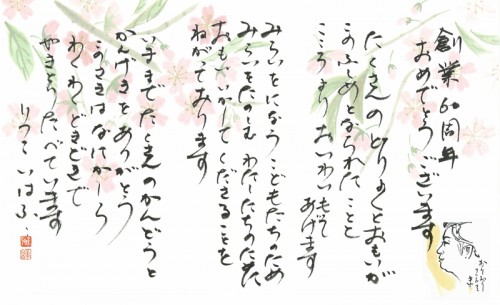 創業60周年
おめでとうございます
たくさんのどりょくとおもいが
このふしめになられたことと
こころよりおいわい
あげます
みらいをになうこどもたちのため
みらいをたのしむわたしたちのために
おもいをいかしてくださることを
ねがっております
いままでたくさんのかんどうと
かんげきをありがとう
このさきはなにかしら
わくわくどきどきで
やきとりたべています
りつこ